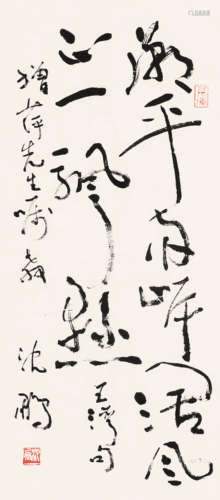 潮平两岸阔风
正一帆悬 王湾句
增萍先生嘱教 沈鹏